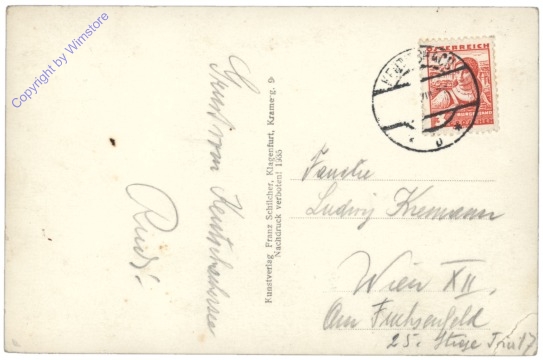 Copyright by Wimstore
ÖSTERREICH
Gruß vom Keutschachersee
Rudi!
Kunstverlag Franz Schilcher, Klagenfurt, Kramerg. 9
Nachdruck verboten! 1935
Familie
Ludwig Kremann
Wien XII.
Am Fuchsenfeld
25. Stiege